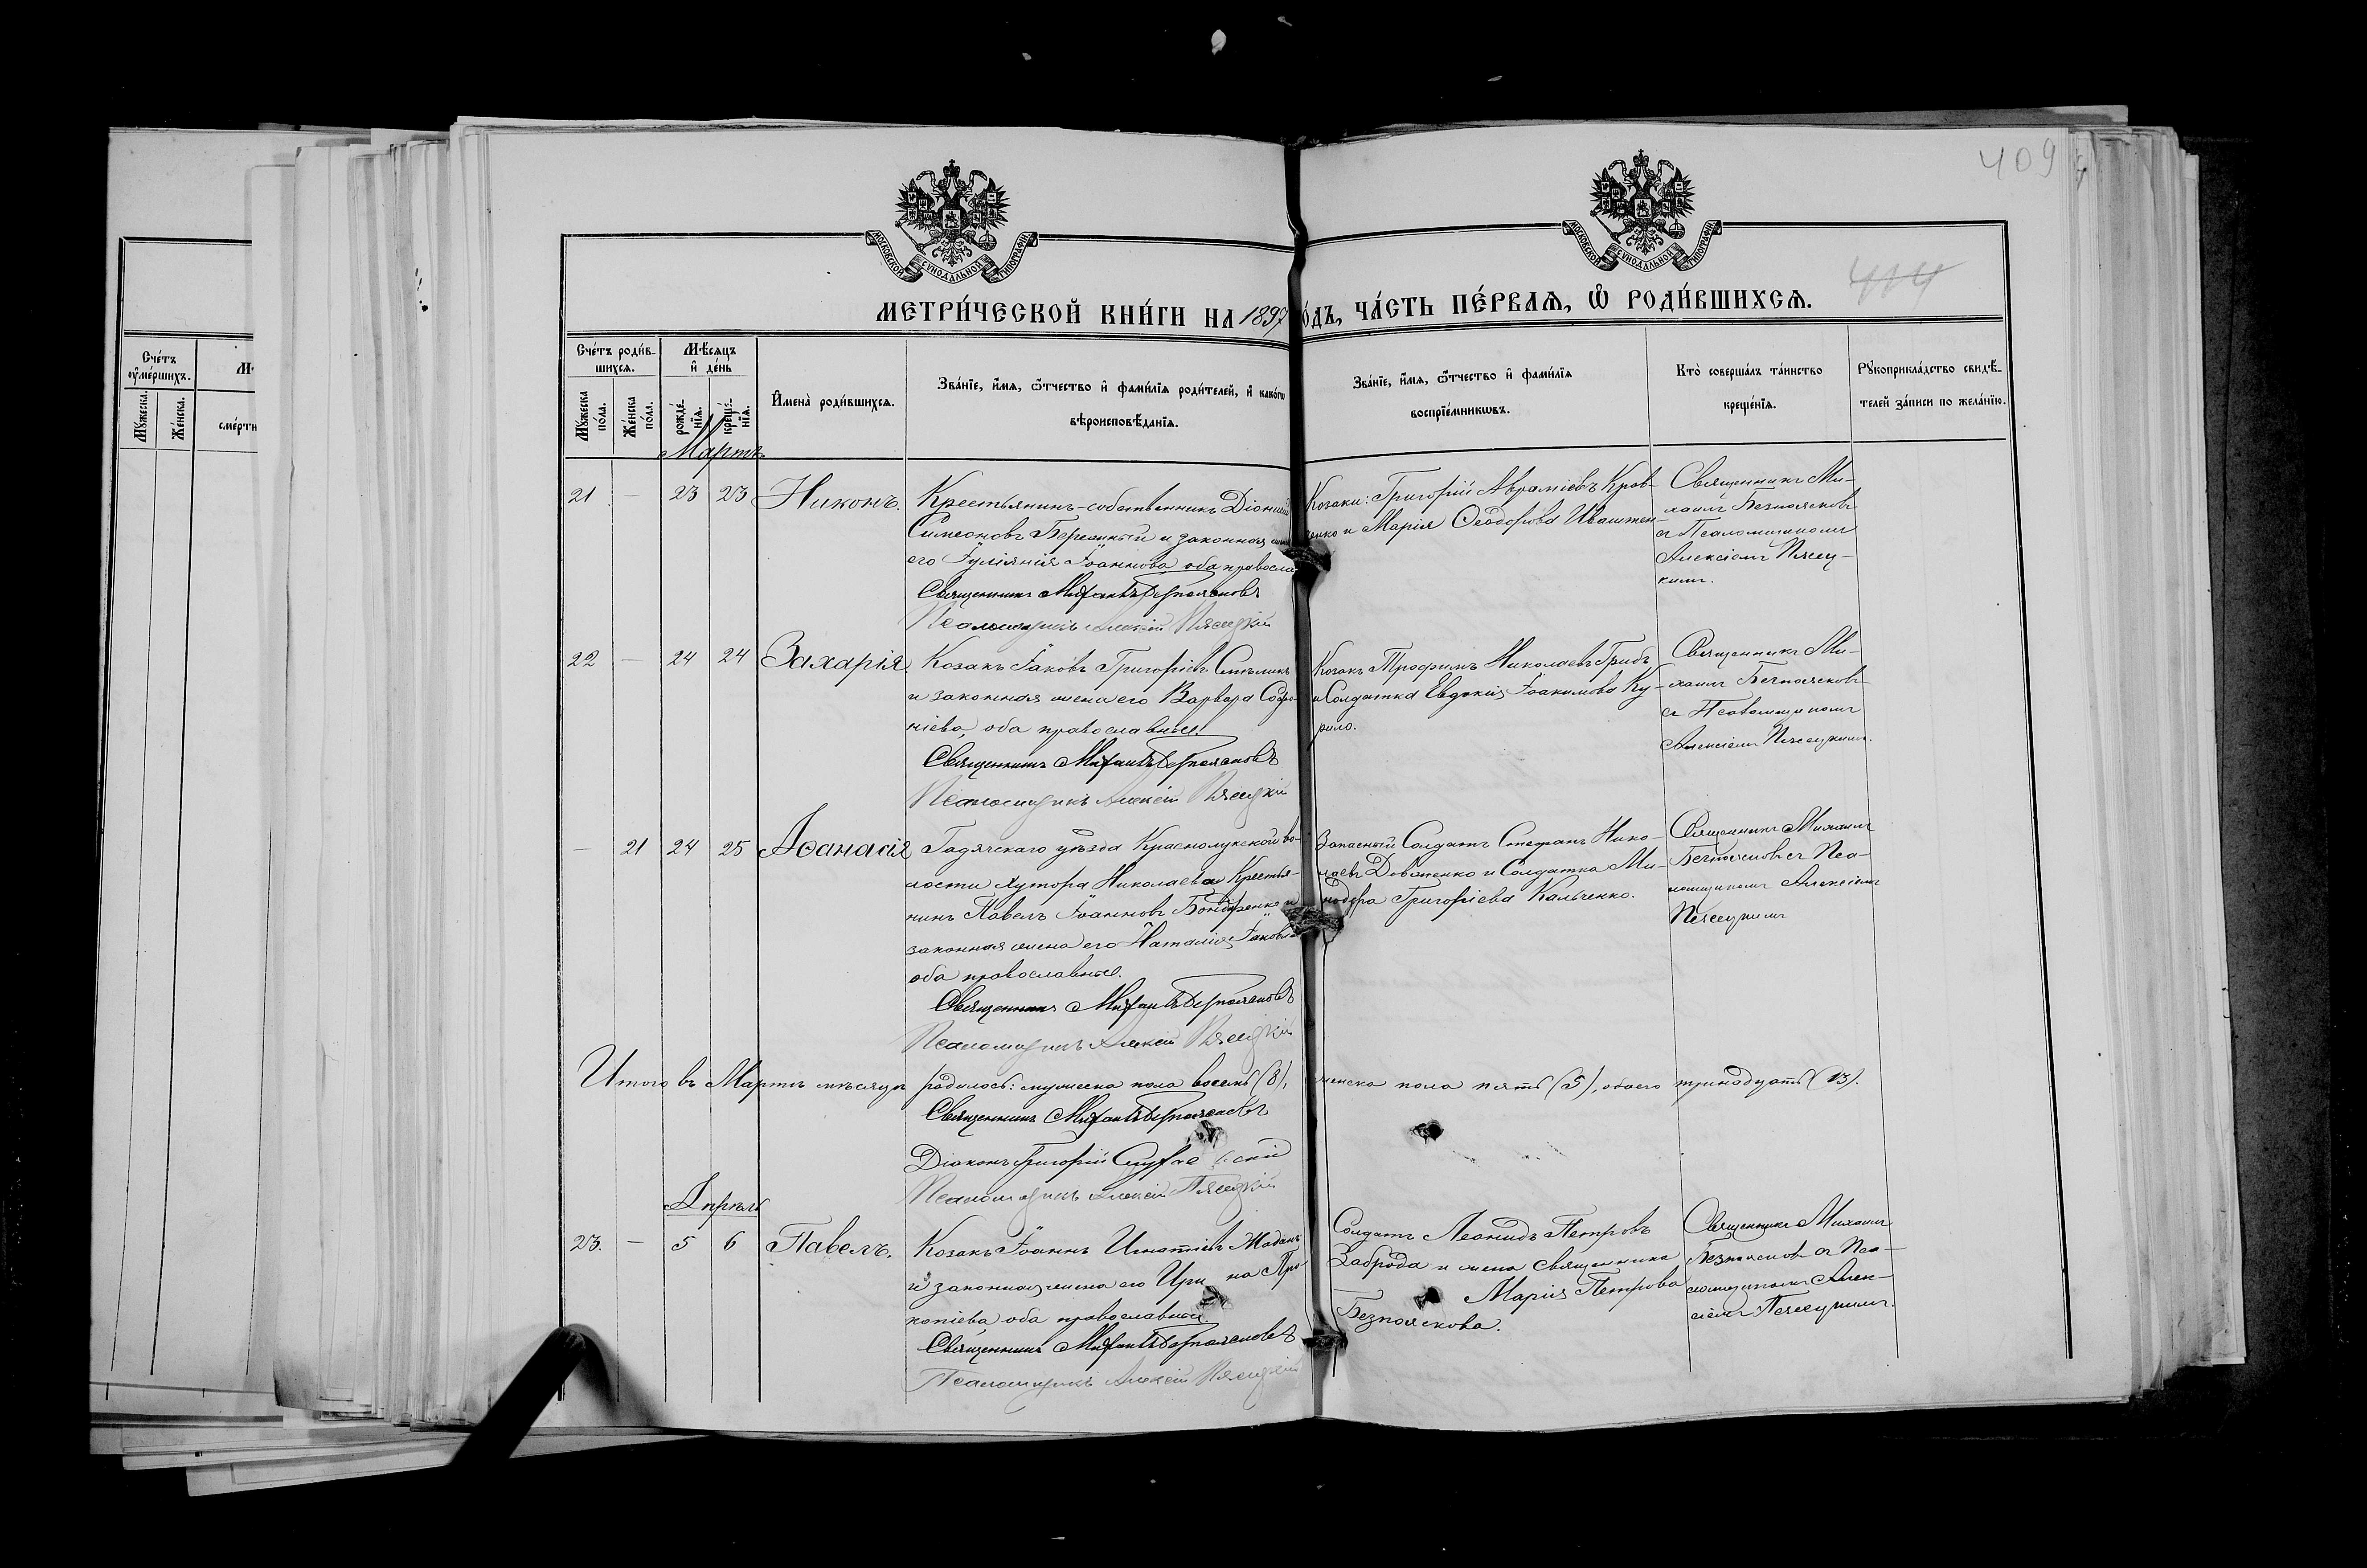 409
МОСКОВСКОЙ СѴНОДАЛЬНОЙ ТИПОГРАФІИ
МОСКОВСКОЙ СѴНОДАЛЬНОЙ ТИПОГРАФІИ
414
МЕТРИ́ЧЕСКОЙ КНИ́ГИ НА 1897 ГО́ДЪ, ЧА́СТЬ ПЕ́РВАѦ, Ѽ РОДИ́ВШИХСѦ.
Сче́тъ ᲂу҆ме́ршихъ.
Мꙋ́жеска.
Же́нска.
Сче́тъ роди́в-
шихсѧ.
Мꙋ́жеска по́ла.
Же́нска по́ла.
Мѣ́сѧцъ
и҆ де́нь
рожде́-нїѧ.
креще́-нїѧ.
И҆мена̀ роди́вшихсѧ.
Зва́нїе, и҆́мѧ, ѻ҆́тчество и҆ фами́лїѧ роди́телей, и҆ како́гѡ
вѣроисповѣ́данїѧ.
Зва́нїе, и҆́мѧ, ѻ҆́тчество и҆ фами́лїѧ
воспрїе́мникѡвъ.
Кто̀ соверша́лъ та́инство
креще́нїѧ.
Рꙋкоприкла́дство свидѣ́-
телей за́писи по жела́нїю.
Мартъ
21 — 23 23 Никонъ.
Крестьянинъ-собственникъ Діонисій
Симеоновъ Бережный и законная жена
его Іуліянія Іоаннова, оба правосла
Священникъ Михаилъ Безпоясковъ
Псаломщикъ Алексій Пясецкій
Козаки: Григорій Авраміевъ Крав-
ченко и Марія Ѳеодорова Ивашчен-
Священникъ Ми-
хаилъ Безпоясковъ
съ Псаломщикомъ
Алексіемъ Пясец-
кимъ.
22 — 24 24 Захарія.
Козакъ Іаковъ Григоріевъ
и законная жена его Варвара Софро-
ніева, оба православные.
Священникъ Михаилъ Безпоясковъ
Псаломщикъ Алексій Пясецкій
Козакъ Трофимъ Николаевъ Грибъ
и Солдатка Евдокія Іоакимова Ку-
рило.
Священникъ Ми-
хаилъ Безпоясковъ
съ Псаломщикомъ
Алексіемъ Пясецкимъ.
— 21 24 25 Аѳанасія
Гадячскаго уѣзда Краснолукской во-
лости хутора Николаева Крестья-
нинъ Павелъ Іоанновъ Бондаренко и
законная жена его Наталія Іаковл
оба православные.
Священникъ Михаилъ Безпоясковъ
Псаломщикъ Алексій Пясецкій
Запасный Солдатъ Стефанъ Нико-
лаевъ Довженко и Солдатка Ми-
нодора Григоріева Кальченко.
Священникъ Михаилъ
Безпоясковъ съ Пса-
ломщикомъ Алексіемъ
Пясецкимъ
Итого въ Мартѣ мѣсяцѣ родилось: мужеска пола восемь (8), женска пола пять (5), обоего тринадцать (13).
Священникъ Михаилъ Безпоясковъ
Діаконъ Григорій
Псаломщикъ Алексій Пясецкій
Апрѣль
23. — 5 6 Павелъ.
Козакъ Іоаннъ Игнатіевъ Маданъ
и законная жена его Ири на Про
копіева, оба православные.
Священникъ Михаилъ Безпоясковъ
Псаломщикъ Алексій Пясецкій
Солдатъ Леонидъ Петровъ
Заброда и жена Священника
Марія Петрова
Безпояскова.
Священникъ Михаилъ
Безпоясковъ съ Пса-
ломщикомъ Алек-
сіемъ Пясецкимъ.